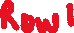 Row 1